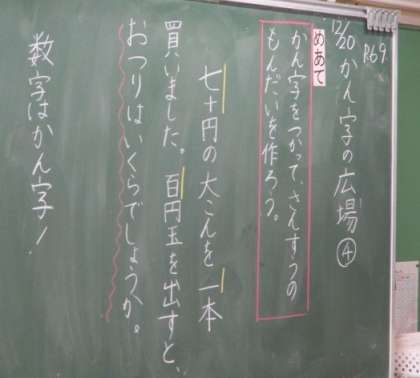 P.69
12/20 かん字の広場④
めあて
かん字をつかって、さんすうの
もんだいを作ろう。
七十円の大こんを一本
買いました。百円玉を出すと、
おつりはいくらでしょうか。
数字はかん字!